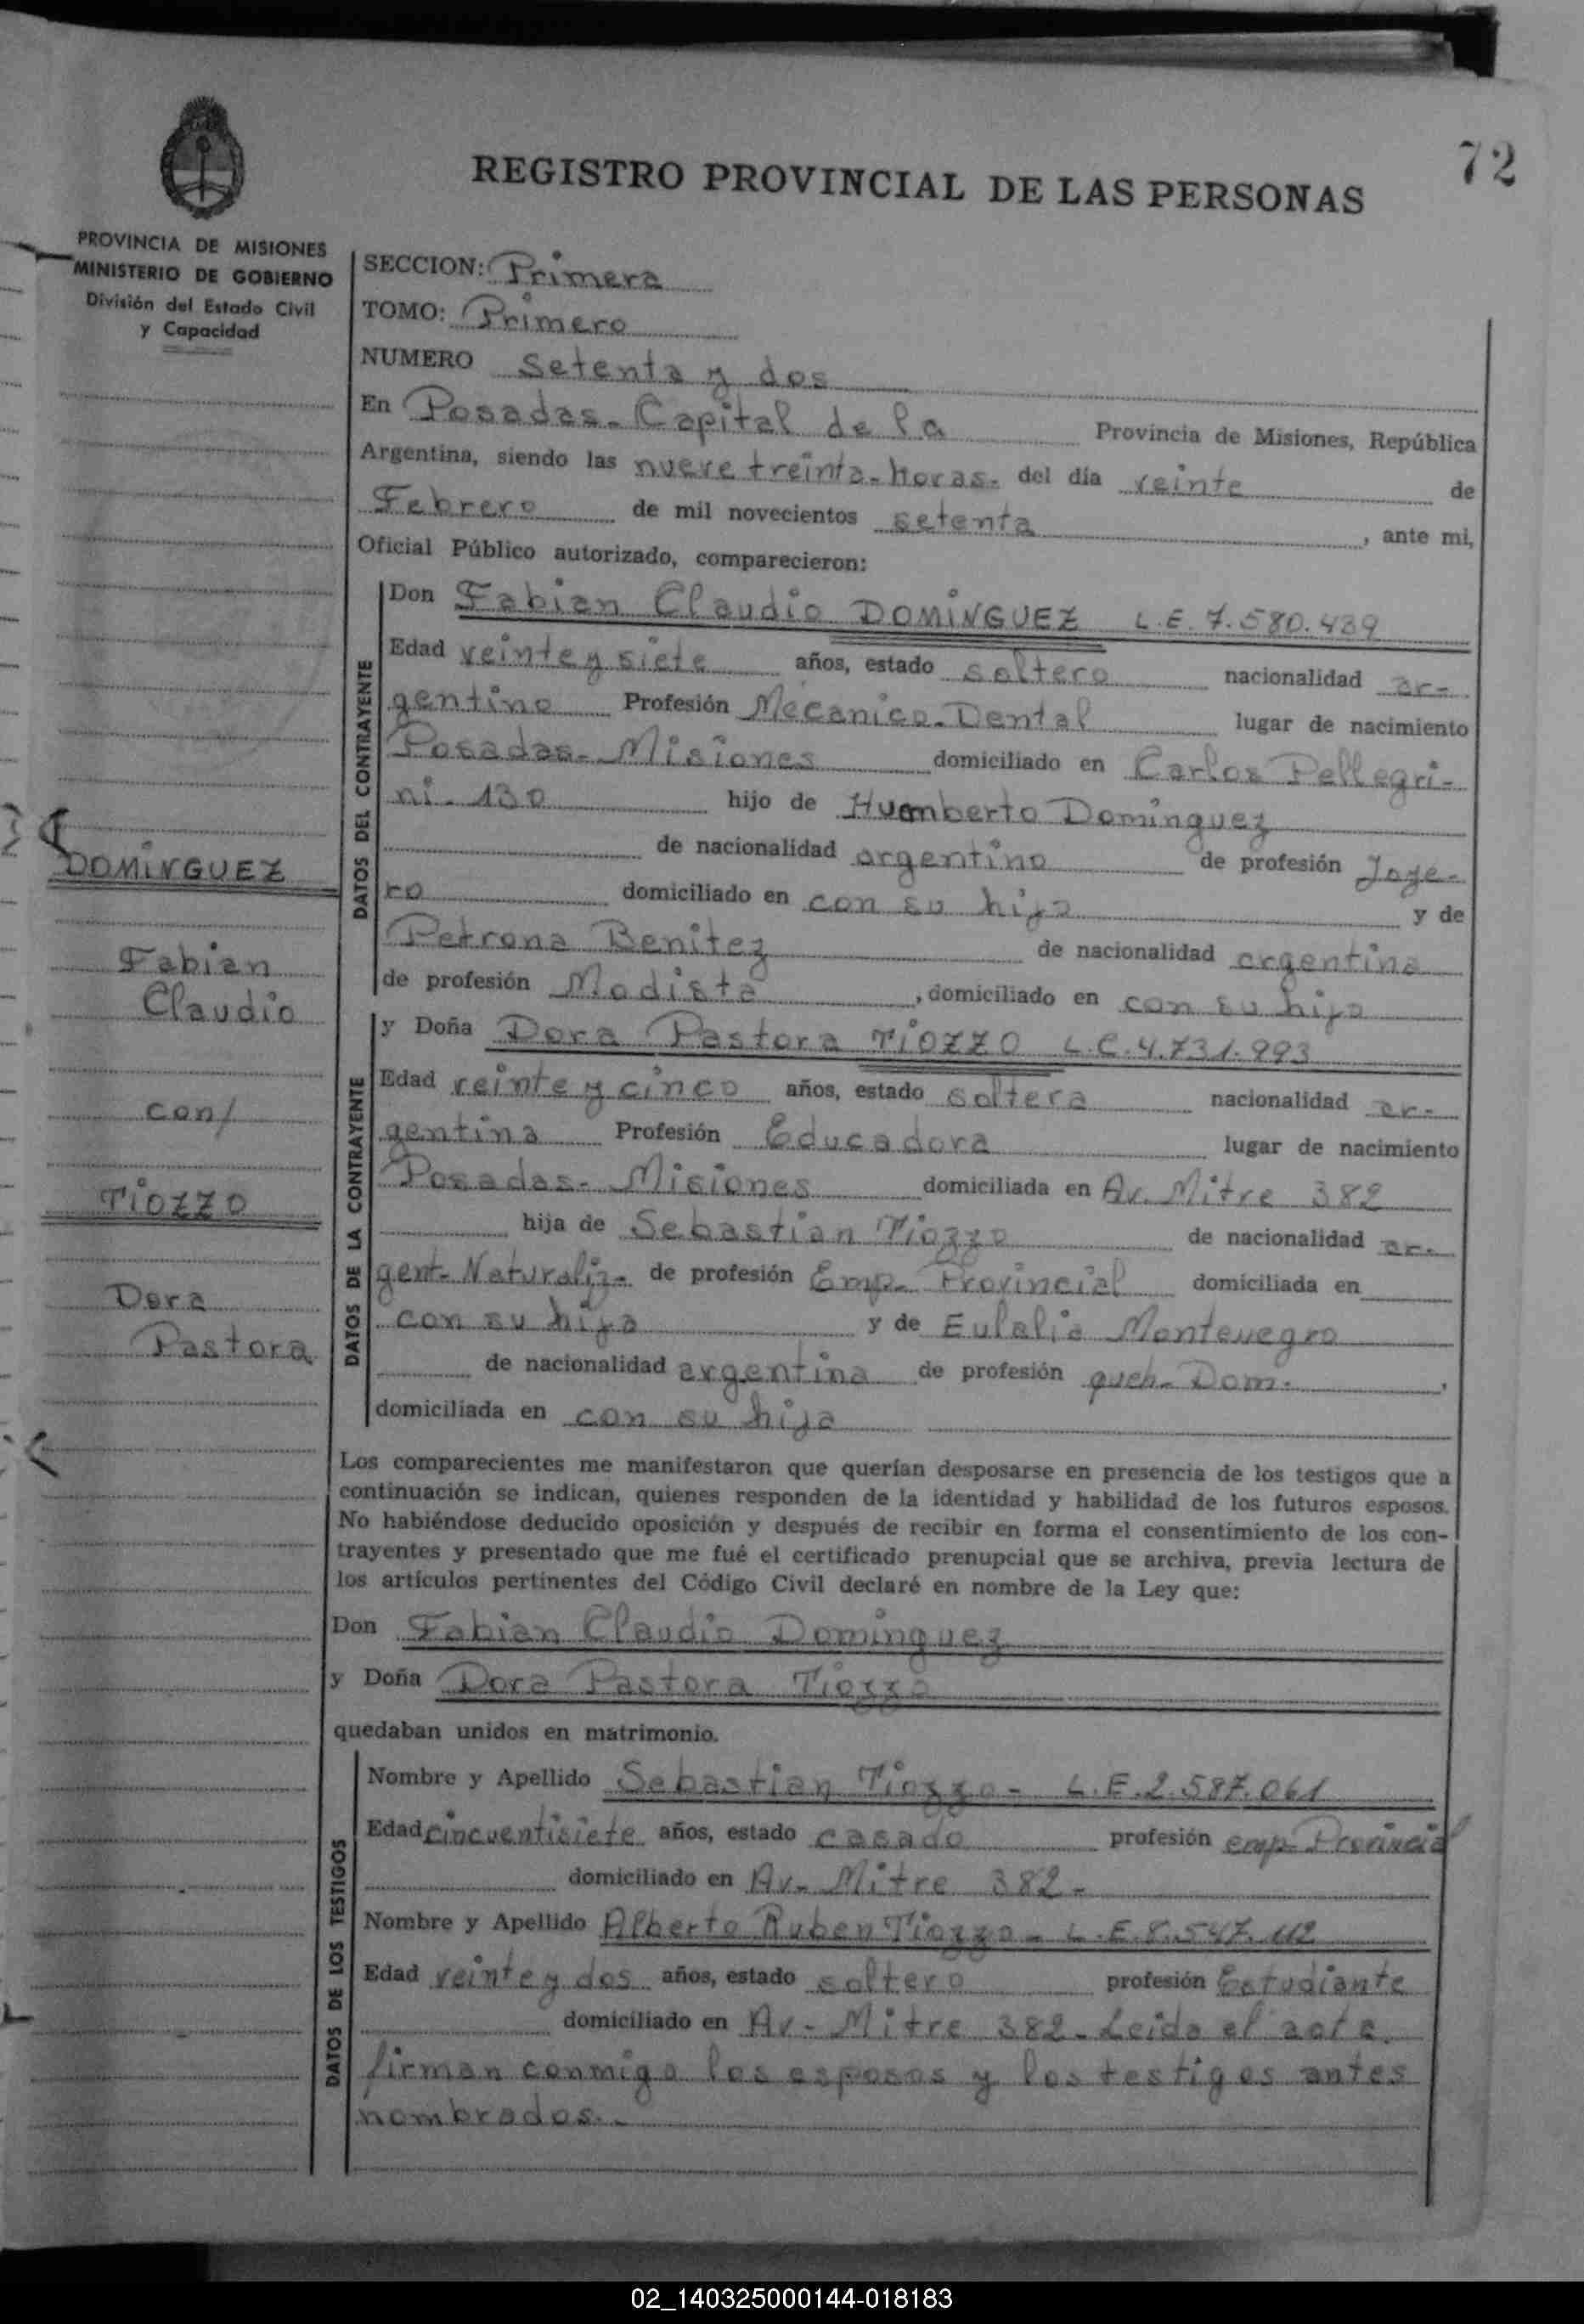 72
REGISTRO PROVINCIAL DE LAS PERSONAS
PROVINCIA DE MISIONES
MINISTERIO DE GOBIERNO
División del Estado Civil
y Capacidad
DOMINGUEZ
Fabian
Claudio
con/
TIOZZO
Dora
Pastora
SECCION: Primera
TOMO: Primero
NUMERO setenta y dos
En Posadas-Capital de la Provincia de Misiones, República
Argentina, siendo las nueve treinta-horas- del día veinte de
Febrero de mil novecientos setenta, ante mi,
Oficial Público autorizado, comparecieron:
DATOS DEL CONTRAYENTE
Don Fabian Claudio DOMINGUEZ L.E. 7.580.439
Edad veinte y siete años, estado soltero nacionalidad ar-
gentino Profesión Mecanico-Dental lugar de nacimiento
Posadas-Misiones domiciliado en Carlos Pellegri-
ni-130 hijo de Humberto Dominguez
de nacionalidad argentino de profesión Joye-
ro domiciliado en con su hijo y de
Petrona Benitez de nacionalidad argentina
de profesión Modista, domiciliado en con su hijo
DATOS DE LA CONTRAYENTE
y Doña Dora Pastora TIOZZO L.C.4.731.993
Edad veinte y cinco años, estado soltera nacionalidad ar-
gentina Profesión Educadora lugar de nacimiento
Posadas-Misiones domiciliada en Av. Mitre 382
hija de Sebastian Tiozzo de nacionalidad ar-
gent-Naturaliz- de profesión Emp- Provincial domiciliada en
con su hija y de Eulalia Montenegro
de nacionalidad argentina de profesión queh-Dom.,
domiciliada en con su hija
Los comparecientes me manifestaron que querían desposarse en presencia de los testigos que a
continuación se indican, quienes responden de la identidad y habilidad de los futuros esposos.
No habiéndose deducido oposición y después de recibir en forma el consentimiento de los con-
trayentes y presentado que me fué el certificado prenupcial que se archiva, previa lectura de
los artículos pertinentes del Código Civil declaré en nombre de la Ley que:
Don Fabian Claudio Dominguez
y Doña Dora Pastora Tiozzo
quedaban unidos en matrimonio.
DATOS DE LOS TESTIGOS
Nombre y Apellido Sebastian Tiozzo- L.E.2.587.061
Edad cincuentisiete años, estado casado profesión emp-Provincial
domiciliado en Av- Mitre 382-
Nombre y Apellido Alberto Ruben Tiozzo- L.E.8.547.112
Edad veinte y dos años, estado soltero profesión Estudiante
domiciliado en Av- Mitre 382-Leida el acta
firman conmigo los esposos y los testigos antes
nombrados.-
02_140325000144-018183